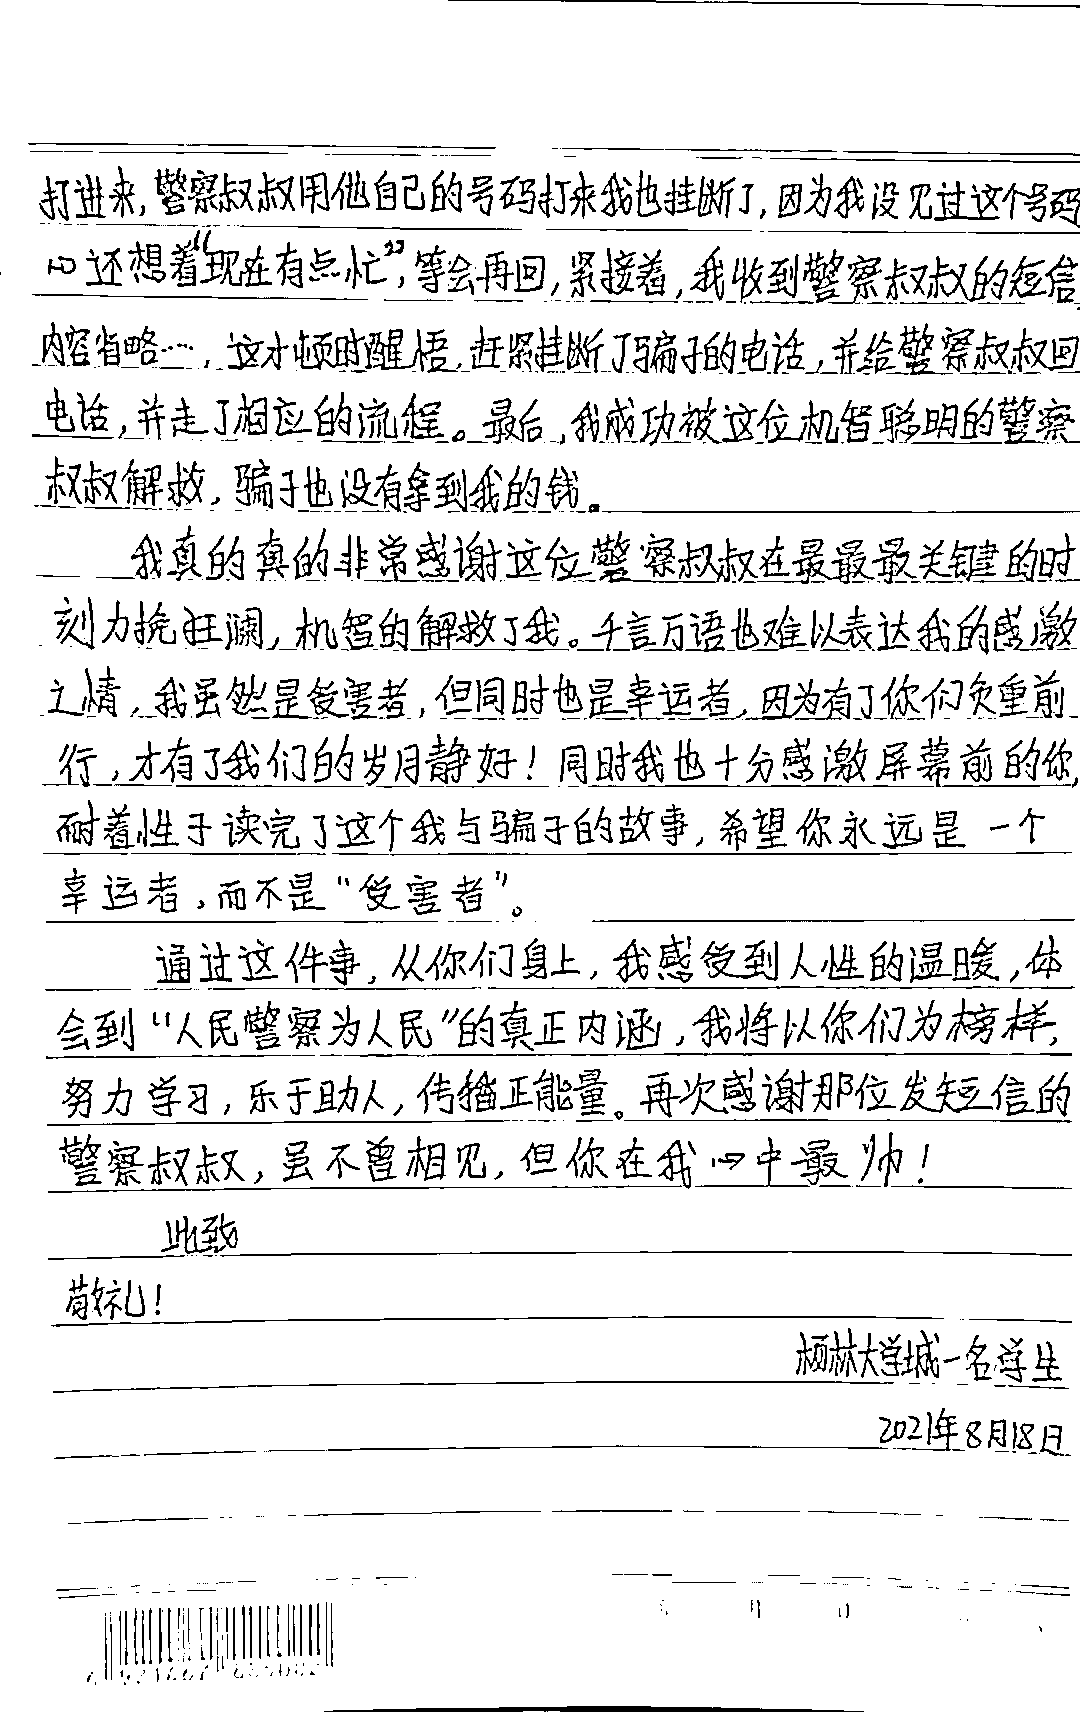 打进来,警察叔叔用他自己的号码打来我也挂断了,因为我没见过这个号码
心还想着“现在有点忙”,等会再回,紧接着,我收到警察叔叔的短信,
内容省略……,这才顿时醒悟,赶紧挂断了骗子的电话,并给警察叔叔回
电话,并走了相应的流程。最后,我成功被这位机智聪明的警察
叔叔解救,骗子也没有拿到我的钱。
我真的真的非常感谢这位警察叔叔在最最最关键的时
刻力挽狂澜,机智的解救了我。千言万语也难以表达我的感激
之情,我虽然是受害者,但同时也是幸运者,因为有了你们负重前
行,才有了我们的岁月静好!同时我也十分感激屏幕前的你,
耐着性子读完了这个我与骗子的故事,希望你永远是一个
幸运者,而不是“受害者”。
通过这件事,从你们身上,我感受到人性的温暖,体
会到“人民警察为人民”的真正内涵,我将以你们为榜样,
努力学习,乐于助人,传播正能量。再次感谢那位发短信的
警察叔叔,虽不曾相见,但你在我心中最帅!
此致
敬礼!
杨林大学城一名学生
2021年8月18日